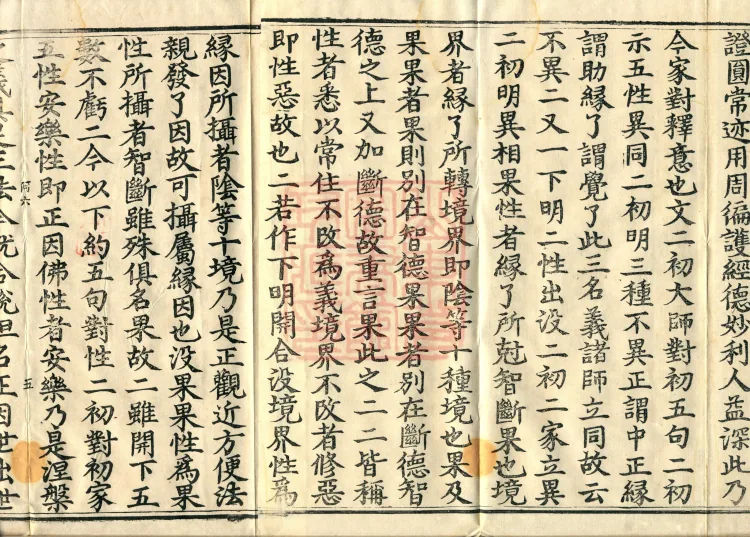 證圓常迹用周徧護經德妙利人益深此乃
今家對釋意也文二初大師對初五句二初
示五性異同二初明三種不異正謂中正緣
謂助緣了謂覺了此三名義諸師立同故云
不異二又一下明二性出沒二初二家立異
二初明異相果性者緣了所尅智斷果也境
界者緣了所轉境界即陰等十種境也果及
果果者果則別在智德果果者別在斷德智
德之上又加斷德故重言果此之二二皆稱
性者悉以常住不改為義境界不改者修惡
即性惡故也二若作下明開合沒境界性為
緣因所攝者陰等十境乃是正觀近方便法
親發了因故可攝屬緣因也沒果果性為果
性所攝者智斷雖殊俱名果故二雖開下五
數不虧二今以下約五句對性二初對初家
阿六
五
五性安樂性即正因佛性者安樂乃是涅槃